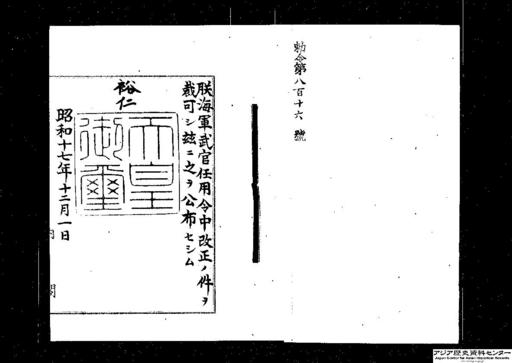 勅令第八百十六號
朕海軍武官任用令中改正ノ件ヲ
裁可シ玆ニ之ヲ公布セシム
裕仁
天皇
御璽
昭和十七年十二月一日
閣
アジア歴史資料センター
Japan Center for Asian Historical Records